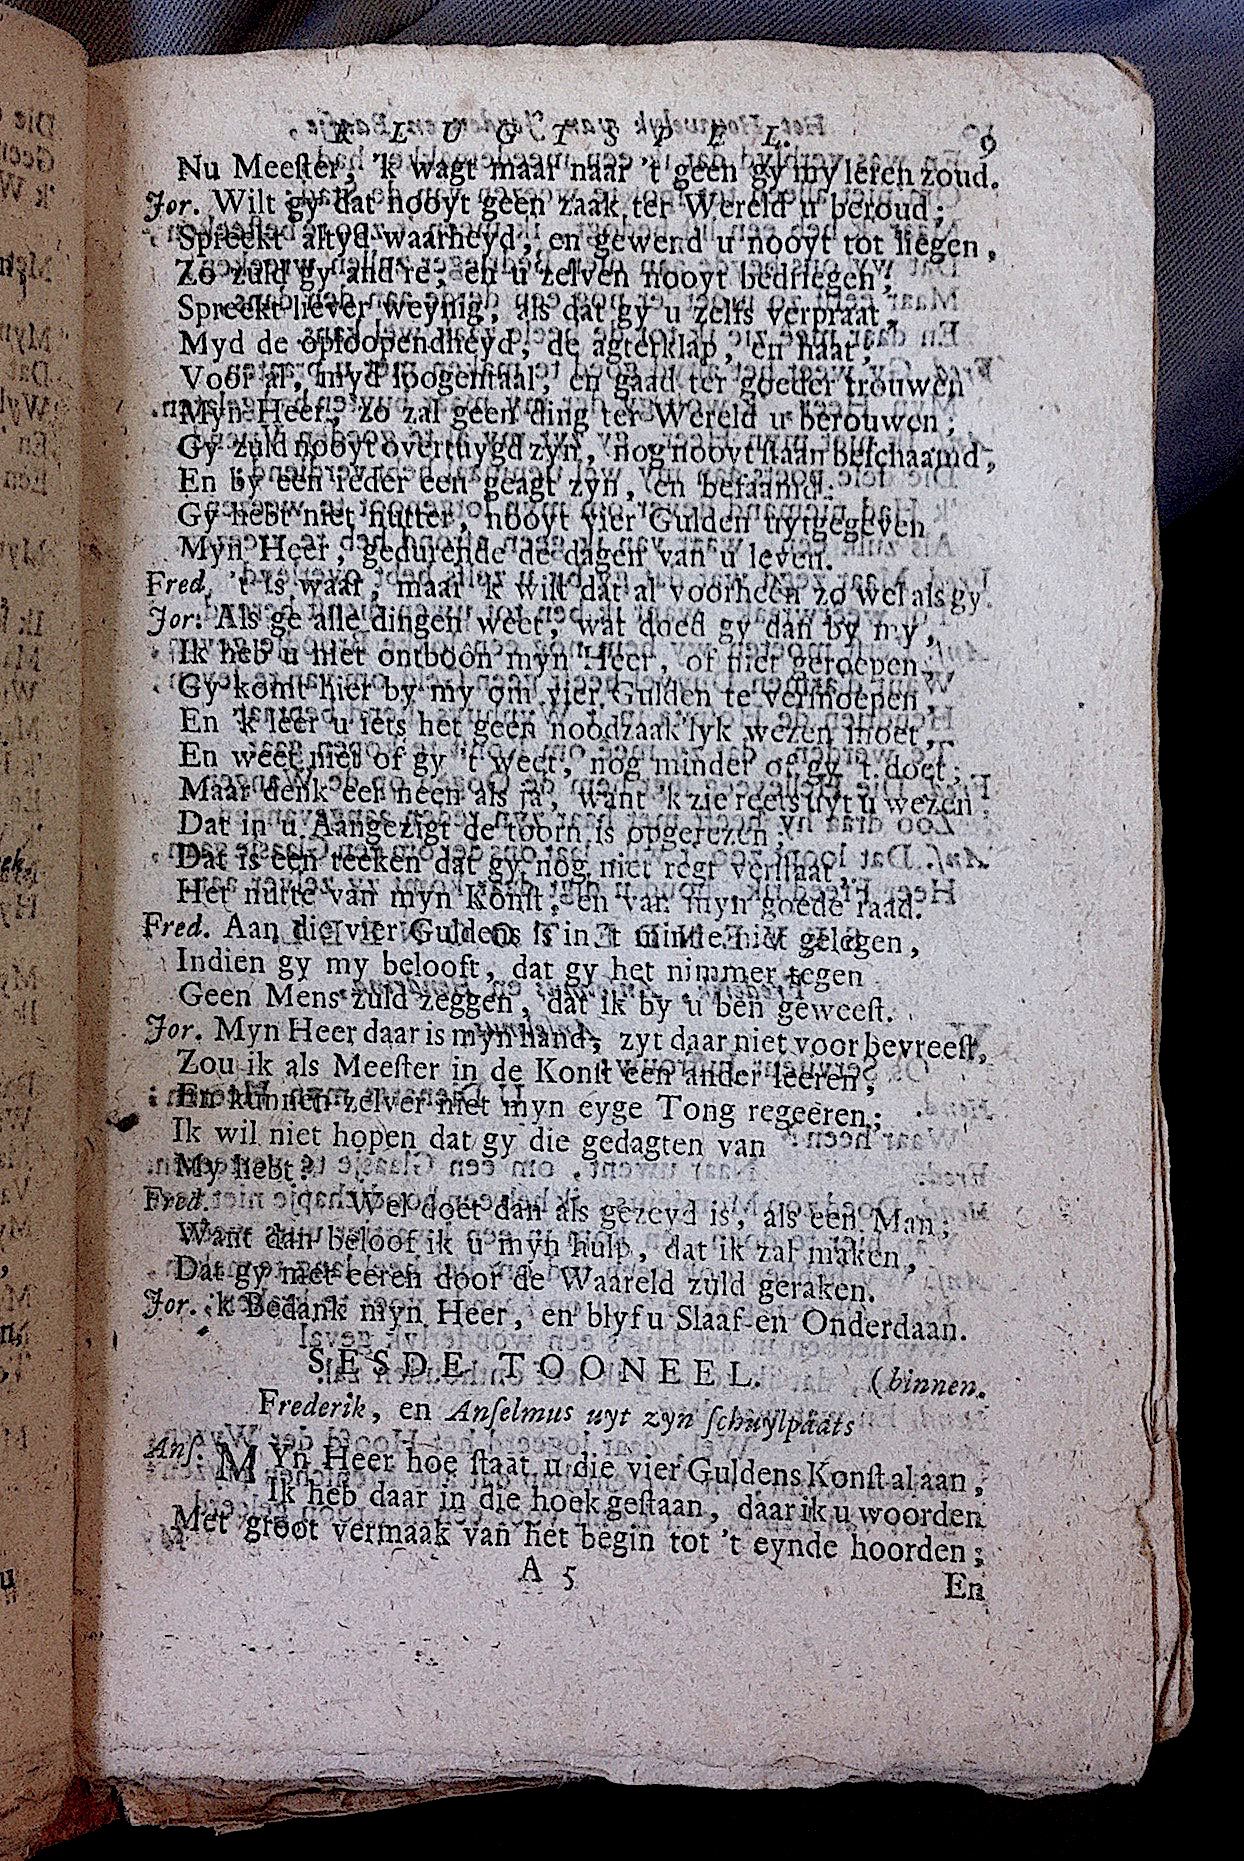 KLUGTSPEL. 9
Nu Meeſter, 'k wagt maar naar 't geen gy my leren zoud.
Jor. Wilt gy dat nooyt geen zaak ter Wereld u beroud;
Spreekt altyd waarheyd, en gewend u nooyt tot liegen,
Zo zuld gy and're, en u zelven nooyt bedriegen;
Spreekt liever weynig, als dat gy u zelfs verpraat,
Myd de oploopendheyd, de agterklap, en haat;
Voor al, myd loogentaal, en gaad ter goeder trouwen
Myn Heer, zo zal geen ding ter Wereld u berouwen;
Gy zuld nooyt overtuygd zyn, nog nooyt ſtaan beſchaamd,
En by een ieder een geagt zyn, en befaamd:
Gy hebt niet nutter, nooyt vier Gulden uytgegeven
Myn Heer, gedurende de dagen van u leven.
Fred. 't Is waar, maar 'k wiſt dat al voorheen zo wel als gy.
Jor: Als ge alle dingen weet, wat doed gy dan by my,
Ik heb u niet ontboôn myn Heer, of hier geroepen,
Gy komt hier by my om vier Gulden te vermoepen,
En 'k leer u iets het geen noodzaak'lyk wezen moet,
En weet niet of gy 't weet, nog minder of gy 't doet;
Maar denk eer neen als ja, want 'k zie reets uyt u wezen
Dat in u Aangezigt de toorn is opgerezen;
Dat is een teeken dat gy nog niet regt verſtaat,
Het nutte van myn Konſt, en van myn goede raad.
Fred. Aan die vier Guldens is in 't minſte niet gelegen,
Indien gy my belooft, dat gy het nimmer tegen
Geen Mens zuld zeggen, dat ik by u ben geweeſt.
Jor. Myn Heer daar is myn hand, zyt daar niet voor bevreeſt,
Zou ik als Meeſter in de Konſt een ander leeren,
En kunnen zelver niet myn eyge Tong regeeren;
Ik wil niet hopen dat gy die gedagten van
My hebt?
Fred. Wel doet dan als gezeyd is, als een Man;
Want dan beloof ik u myn hulp, dat ik zal maken,
Dat gy met eeren door de Waareld zuld geraken.
Jor. 'k Bedank myn Heer, en blyf u Slaaf en Onderdaan.
SESDE TOONEEL. (binnen.
Frederik, en Anſelmus uyt zyn ſchuylplaats
Anſ: MYn Heer hoe ſtaat u die vier Guldens Konſt al aan,
Ik heb daar in die hoek geſtaan, daar ik u woorden
Met groot vermaak van het begin tot 't eynde hoorden;
A 5
En